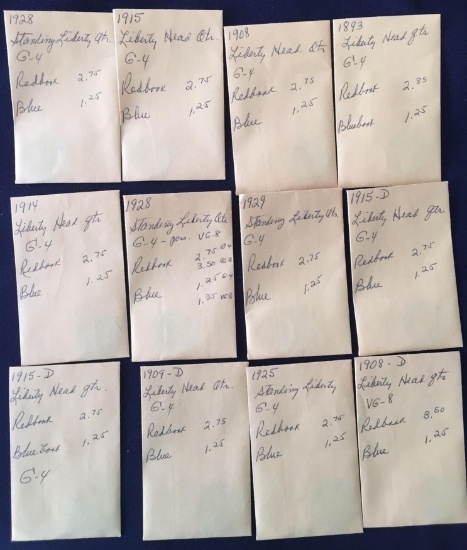 1928
Standing Liberty Qtr.
G-4
Redbook 2.75
Blue 1.25
1915
Liberty Head Qtr.
G-4
Redbook 2.75
Blue 1.25
1908
Liberty Head Qtr.
G-4
Redbook 2.75
Blue 1.25
1893
Liberty Head qtr
G-4
Redbook 2.85
Bluebook 1.25
1914
Liberty Head qtr
G-4
Redbook 2.75
Blue 1.25
1928
Standing Liberty Qtr
G-4 - poss. VG-8
Redbook 2.75 G-4
3.50 VG-8
Blue 1.25 G-4
1.35 VG-8
1929
Standing Liberty Qtr.
G-4
Redbook 2.75
Blue 1.25
1915-D
Liberty Head qtr.
G-4
Redbook 2.75
Blue 1.25
1915-D
Liberty Head qtr.
Redbook 2.75
Blue book 1.25
G-4
1909-D
Liberty Head Qtr.
G-4
Redbook 2.75
Blue 1.25
1925
Standing Liberty
G-4
Redbook 2.75
Blue 1.25
1908-D
Liberty Head qtr
VG-8
Redbook 3.50
Blue 1.25